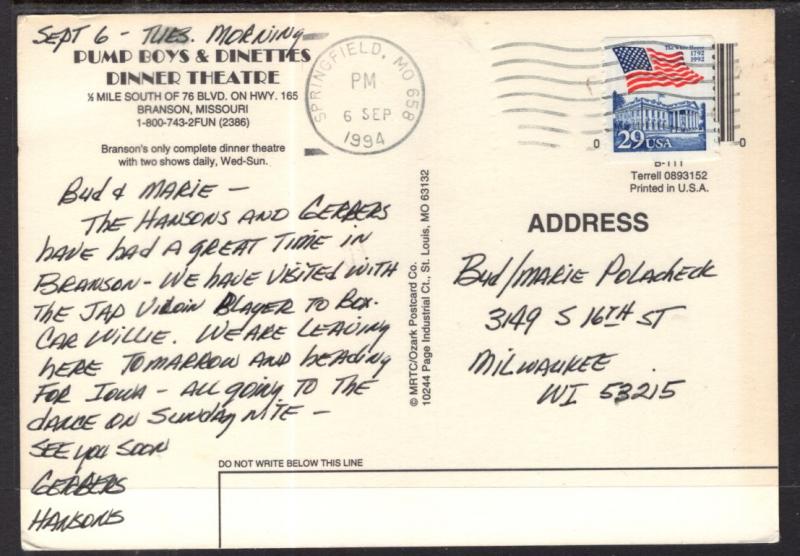 SEPT 6 - TUES. MORNING
PUMP BOYS & DINETTES
DINNER THEATRE
½ MILE SOUTH OF 76 BLVD. ON HWY. 165
BRANSON, MISSOURI
1-800-743-2FUN (2386)
Branson's only complete dinner theatre
with two shows daily, Wed-Sun.
BUD & MARIE -
THE HANSONS AND GERBERS
HAVE HAD A GREAT TIME IN
BRANSON - WE HAVE VISITED WITH
THE JAP VIOLIN PLAYER TO BOX-
CAR WILLIE. WE ARE LEAVING
HERE TOMARROW AND HEADING
FOR IOWA - ALL GOING TO THE
DANCE ON SUNDAY NITE -
SEE YOU SOON
GERBERS
HANSONS
SPRINGFIELD, MO 658
PM
6 SEP
1994
© MRTC/Ozark Postcard Co.
10244 Page Industrial Ct., St. Louis, MO 63132
The White House
1792
1992
29 USA
0
0
B-111
Terrell 0893152
Printed in U.S.A.
ADDRESS
BUD/MARIE POLACHECK
3149 S 16TH ST
MILWAUKEE
WI 53215
DO NOT WRITE BELOW THIS LINE